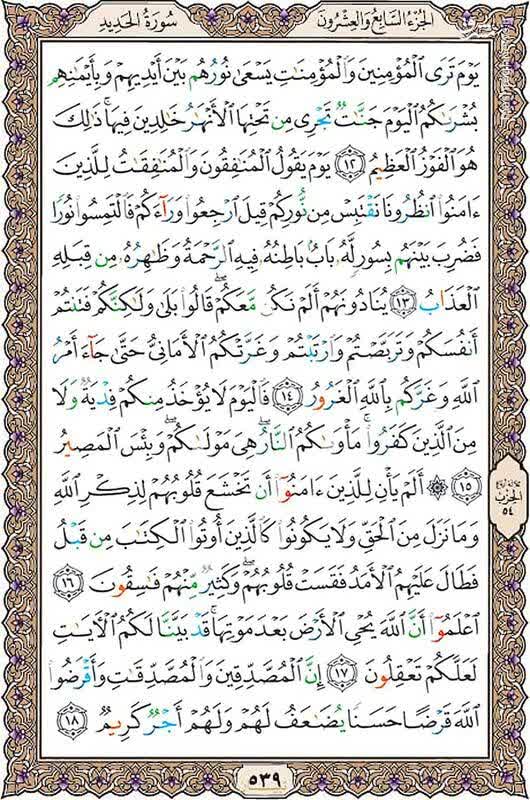 سُورَةُ الحَدِيدِ
الجُزْءُ السَّابِعُ وَالعِشْرُونَ
يَوْمَ تَرَى ٱلْمُؤْمِنِينَ وَٱلْمُؤْمِنَٰتِ يَسْعَىٰ نُورُهُم بَيْنَ أَيْدِيهِمْ وَبِأَيْمَٰنِهِم
بُشْرَىٰكُمُ ٱلْيَوْمَ جَنَّٰتٌ تَجْرِى مِن تَحْتِهَا ٱلْأَنْهَٰرُ خَٰلِدِينَ فِيهَا ۚ ذَٰلِكَ
هُوَ ٱلْفَوْزُ ٱلْعَظِيمُ ١٢ يَوْمَ يَقُولُ ٱلْمُنَٰفِقُونَ وَٱلْمُنَٰفِقَٰتُ لِلَّذِينَ
ءَامَنُوا۟ ٱنظُرُونَا نَقْتَبِسْ مِن نُّورِكُمْ قِيلَ ٱرْجِعُوا۟ وَرَآءَكُمْ فَٱلْتَمِسُوا۟ نُورًا
فَضُرِبَ بَيْنَهُم بِسُورٍ لَّهُۥ بَابٌۢ بَاطِنُهُۥ فِيهِ ٱلرَّحْمَةُ وَظَٰهِرُهُۥ مِن قِبَلِهِ
ٱلْعَذَابُ ١٣ يُنَادُونَهُمْ أَلَمْ نَكُن مَّعَكُمْ ۖ قَالُوا۟ بَلَىٰ وَلَٰكِنَّكُمْ فَتَنتُمْ
أَنفُسَكُمْ وَتَرَبَّصْتُمْ وَٱرْتَبْتُمْ وَغَرَّتْكُمُ ٱلْأَمَانِىُّ حَتَّىٰ جَآءَ أَمْرُ
ٱللَّهِ وَغَرَّكُم بِٱللَّهِ ٱلْغَرُورُ ١٤ فَٱلْيَوْمَ لَا يُؤْخَذُ مِنكُمْ فِدْيَةٌ وَلَا
مِنَ ٱلَّذِينَ كَفَرُوا۟ ۚ مَأْوَىٰكُمُ ٱلنَّارُ ۖ هِىَ مَوْلَىٰكُمْ ۖ وَبِئْسَ ٱلْمَصِيرُ
١٥ ۞ أَلَمْ يَأْنِ لِلَّذِينَ ءَامَنُوٓا۟ أَن تَخْشَعَ قُلُوبُهُمْ لِذِكْرِ ٱللَّهِ
وَمَا نَزَلَ مِنَ ٱلْحَقِّ وَلَا يَكُونُوا۟ كَٱلَّذِينَ أُوتُوا۟ ٱلْكِتَٰبَ مِن قَبْلُ
فَطَالَ عَلَيْهِمُ ٱلْأَمَدُ فَقَسَتْ قُلُوبُهُمْ ۖ وَكَثِيرٌ مِّنْهُمْ فَٰسِقُونَ ١٦
ٱعْلَمُوٓا۟ أَنَّ ٱللَّهَ يُحْىِ ٱلْأَرْضَ بَعْدَ مَوْتِهَا ۚ قَدْ بَيَّنَّا لَكُمُ ٱلْءَايَٰتِ
لَعَلَّكُمْ تَعْقِلُونَ ١٧ إِنَّ ٱلْمُصَّدِّقِينَ وَٱلْمُصَّدِّقَٰتِ وَأَقْرَضُوا۟
ٱللَّهَ قَرْضًا حَسَنًا يُضَٰعَفُ لَهُمْ وَلَهُمْ أَجْرٌ كَرِيمٌ ١٨
ثلاثة أرباع
الحزب
٥٤
٥٣٩